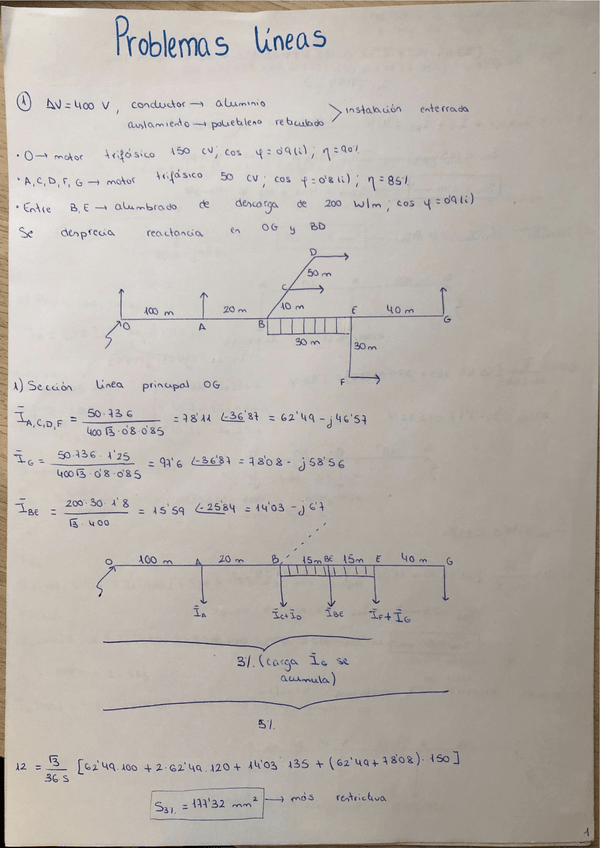 Problemas líneas
① ΔV=400 V, conductor → aluminio
aislamiento → polietileno reticulado > instalación enterrada
• O → motor trifásico 150 CV; cos φ = 0'9(i); η=90%
• A,C,D,F,G → motor trifásico 50 CV; cos φ = 0'8(i); η=85%
• Entre B,E → alumbrado de descarga de 200 W/m; cos φ = 0'9(i)
Se desprecia reactancia en OG y BD
D
50 m
C
100 m 20 m 10 m E 40 m
O A B G
30 m 30 m
F
1) Sección línea principal OG
Ī A,C,D,F = 50·736 / 400√3·0'8·0'85 = 78'11 ∠-36'87 = 62'49 - j46'57
Ī G = 50·736·1'25 / 400√3·0'8·0'85 = 97'6 ∠-36'87 = 78'08 - j58'56
Ī BE = 200·30·1'8 / √3·400 = 15'59 ∠-25'84 = 14'03 - j6'7
O 100 m A 20 m B 15m BE 15m E 40 m G
Ī A Ī C+Ī D Ī BE Ī F+Ī G
3% (carga Ī G se
acumula)
5%
12 = √3 / 36 S [62'49·100 + 2·62'49·120 + 14'03·135 + (62'49+78'08)·150]
S 3% = 177'32 mm² → más restrictiva
1